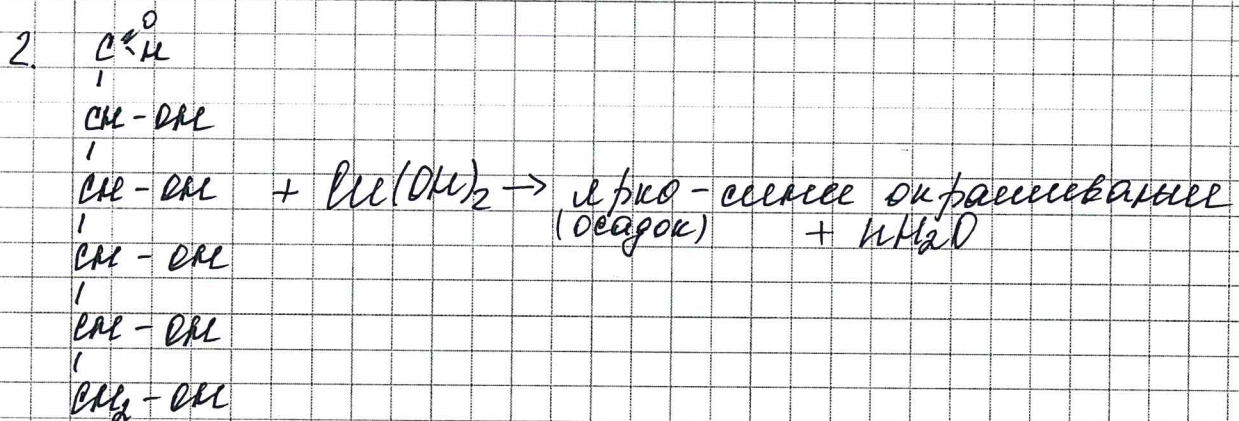 2. C ⟨ O H
CH - OH
CH - OH + Cu(OH)₂ → ярко-синее окрашивание
(осадок) + nH₂O
CH - OH
CH - OH
CH₂ - OH